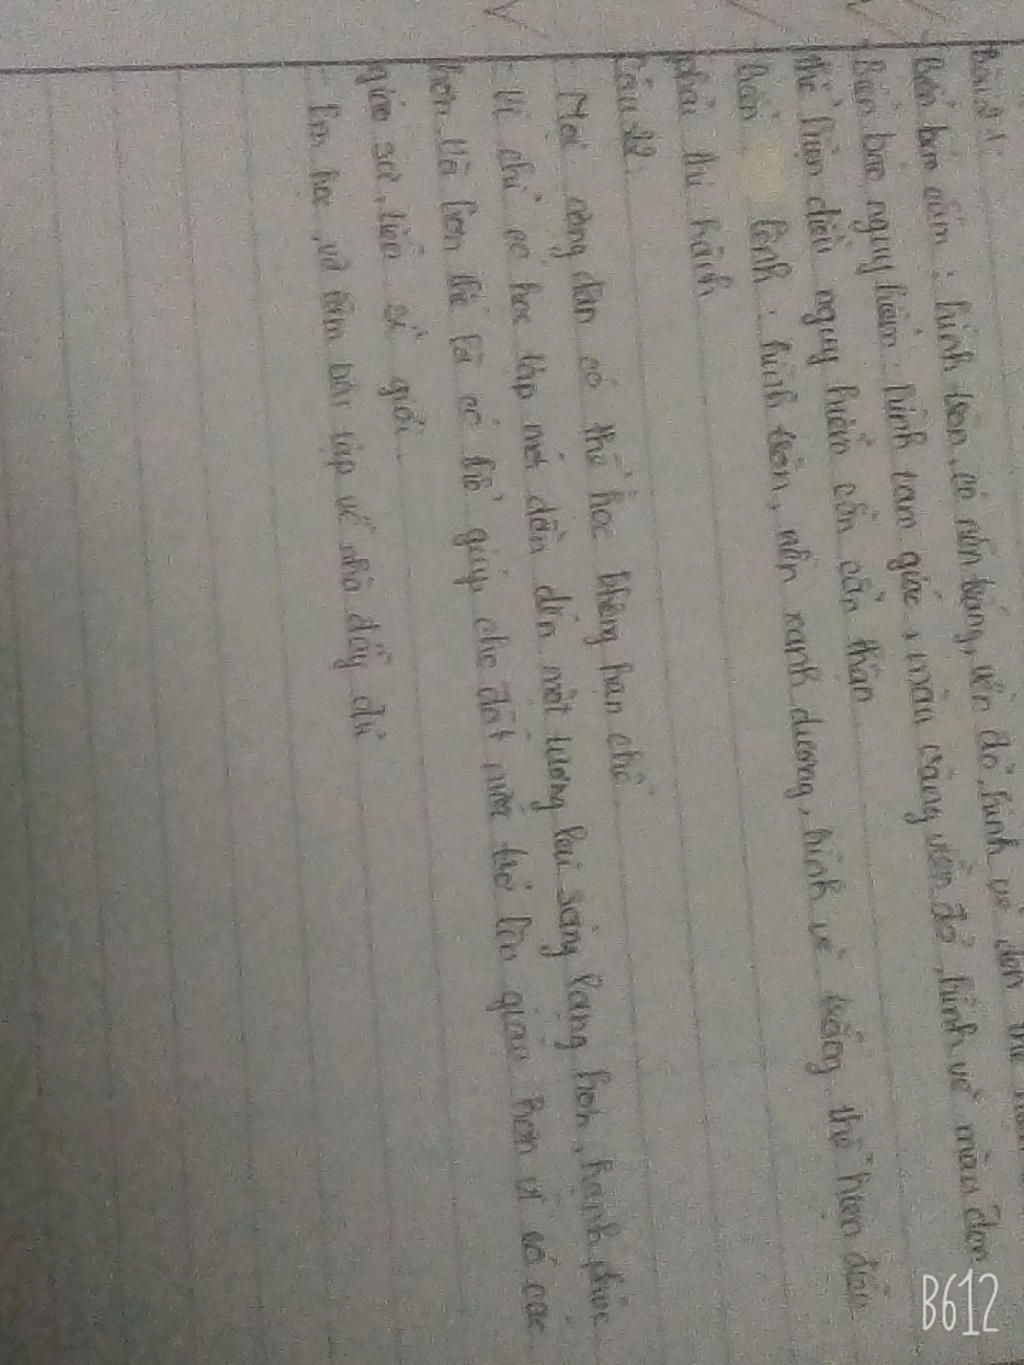 Biển báo cấm: hình tròn, có nền trắng, viền đỏ, hình vẽ đen thể
Biển báo nguy hiểm: hình tam giác, màu vàng viền đỏ, hình vẽ màu đen
thể hiện điều nguy hiểm cần cẩn thận
lệnh: hình tròn, nền xanh dương, hình vẽ trắng thể hiện điều
phải thi hành
Câu 22
Mọi công dân có thể học không hạn chế.
- Vì chỉ có học tập mới dẫn đến một tương lai sáng lạng hơn, hạnh phúc
hơn. Và hơn thế là có thể giúp cho đất nước trở lên giàu hơn vì có các
giáo sư, tiến sĩ giỏi.
- Em học, và làm bài tập về nhà đầy đủ
B612